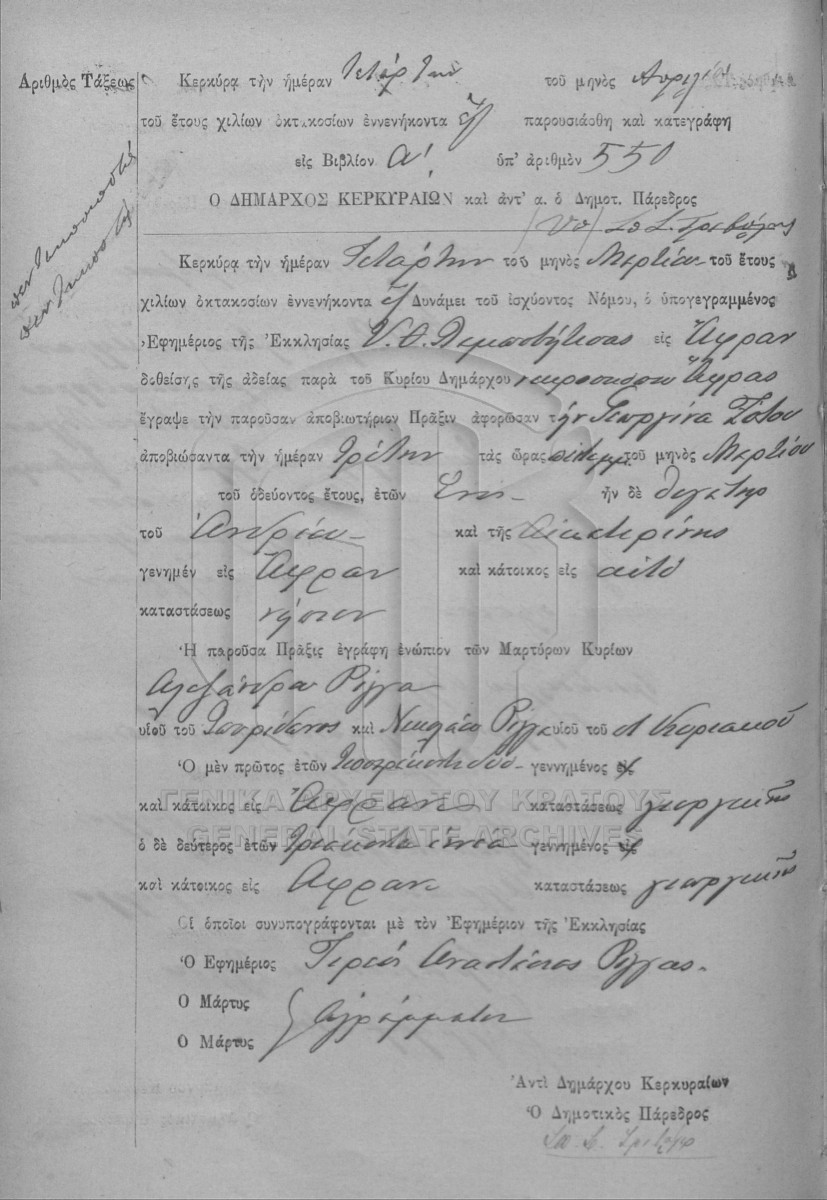 Ἀριθμὸς Τάξεως
πεντακοσιοστὴ
πεντηκοστὴ
Κερκύρᾳ τὴν ἡμέραν Τετάρτην τοῦ μηνὸς Ἀπριλίου
τοῦ ἔτους χιλίων ὀκτακοσίων ἐννενήκοντα ἓξ παρουσιάσθη καὶ κατεγράφη
εἰς Βιβλίον Α′. ὑπ' ἀριθμὸν 550
Ο ΔΗΜΑΡΧΟΣ ΚΕΡΚΥΡΑΙΩΝ καὶ ἀντ' α. ὁ Δημοτ. Πάρεδρος
Κερκύρᾳ τὴν ἡμέραν Τετάρτην τοῦ μηνὸς Μαρτίου τοῦ ἔτους
χιλίων ὀκτακοσίων ἐννενήκοντα ἓξ Δυνάμει τοῦ ἰσχύοντος Νόμου, ὁ ὑπογεγραμμένος
Ἐφημέριος τῆς Ἐκκλησίας Υ. Θ. εἰς Ἄφραν
δοθείσης τῆς ἀδείας παρὰ τοῦ Κυρίου Δημάρχου Ἄφρας
ἔγραψε τὴν παροῦσαν ἀποβιωτήριον Πρᾶξιν ἀφορῶσαν τὴν Γεωργίνα Ζότου
ἀποβιώσαντα τὴν ἡμέραν τρίτην τὰς ὥρας τοῦ μηνὸς Μαρτίου
τοῦ ὁδεύοντος ἔτους, ἐτῶν ἑνὸς ἦν δὲ θυγάτηρ
τοῦ Ἀνδρέου καὶ τῆς Αἰκατερίνης
γενημέν εἰς Ἄφραν καὶ κάτοικος εἰς αὐτὸ
καταστάσεως νήπιον
Ἡ παροῦσα Πρᾶξις ἐγράφη ἐνώπιον τῶν Μαρτύρων Κυρίων
Ἀλεξάνδρου Ρίγγα
υἱοῦ τοῦ Σπυρίδωνος καὶ Νικολάου Ρίγγα υἱοῦ τοῦ Κυριακοῦ
Ὁ μὲν πρῶτος ἐτῶν τεσσαράκοντα δύο γεννημένος εἰς
καὶ κάτοικος εἰς Ἄφραν καταστάσεως γεωργικῆς
ὁ δὲ δεύτερος ἐτῶν τριάκοντα ἐννέα γεννημένος εἰς
καὶ κάτοικος εἰς Ἄφραν καταστάσεως γεωργικῆς
Οἱ ὁποῖοι συνυπογράφονται μὲ τὸν Ἐφημέριον τῆς Ἐκκλησίας
Ὁ Ἐφημέριος Ἱερεὺς Ἀναστάσιος Ρίγγας.
Ὁ Μάρτυς
Ὁ Μάρτυς } Ἀγράμματοι
Ἀντὶ Δημάρχου Κερκυραίων
Ὁ Δημοτικὸς Πάρεδρος
ΓΕΝΙΚΑ ΑΡΧΕΙΑ ΤΟΥ ΚΡΑΤΟΥΣ
GENERAL STATE ARCHIVES